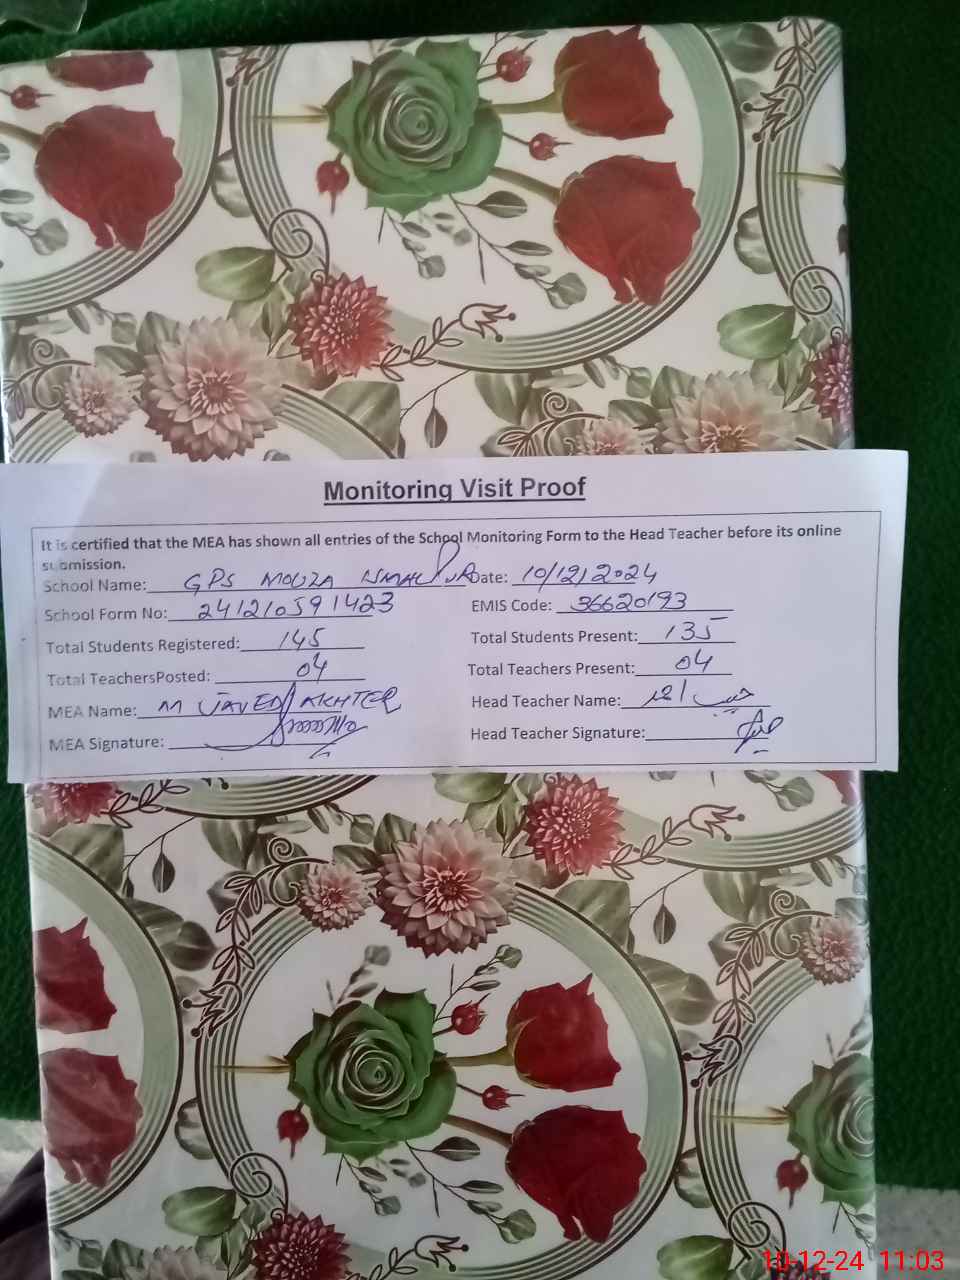 Monitoring Visit Proof
It is certified that the MEA has shown all entries of the School Monitoring Form to the Head Teacher before its online
submission.
School Name: GPS MOUZA ISMAILPUR Date: 10/12/2024
School Form No: 241210591423 EMIS Code: 36620193
Total Students Registered: 145 Total Students Present: 135
Total TeachersPosted: 04 Total Teachers Present: 04
MEA Name: M JAVED AKHTER Head Teacher Name: حبیب احمد
MEA Signature: Head Teacher Signature:
10-12-24 11:03